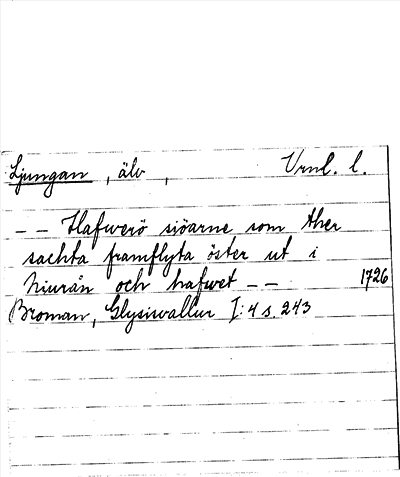 Ljungan, älv, Vrnl. l.
-- Hafwerö siöarne som ther
sachta framflyta öster ut i
Niurån och hafwet -- 1726
Broman, Glysiwallur I:4 s. 243